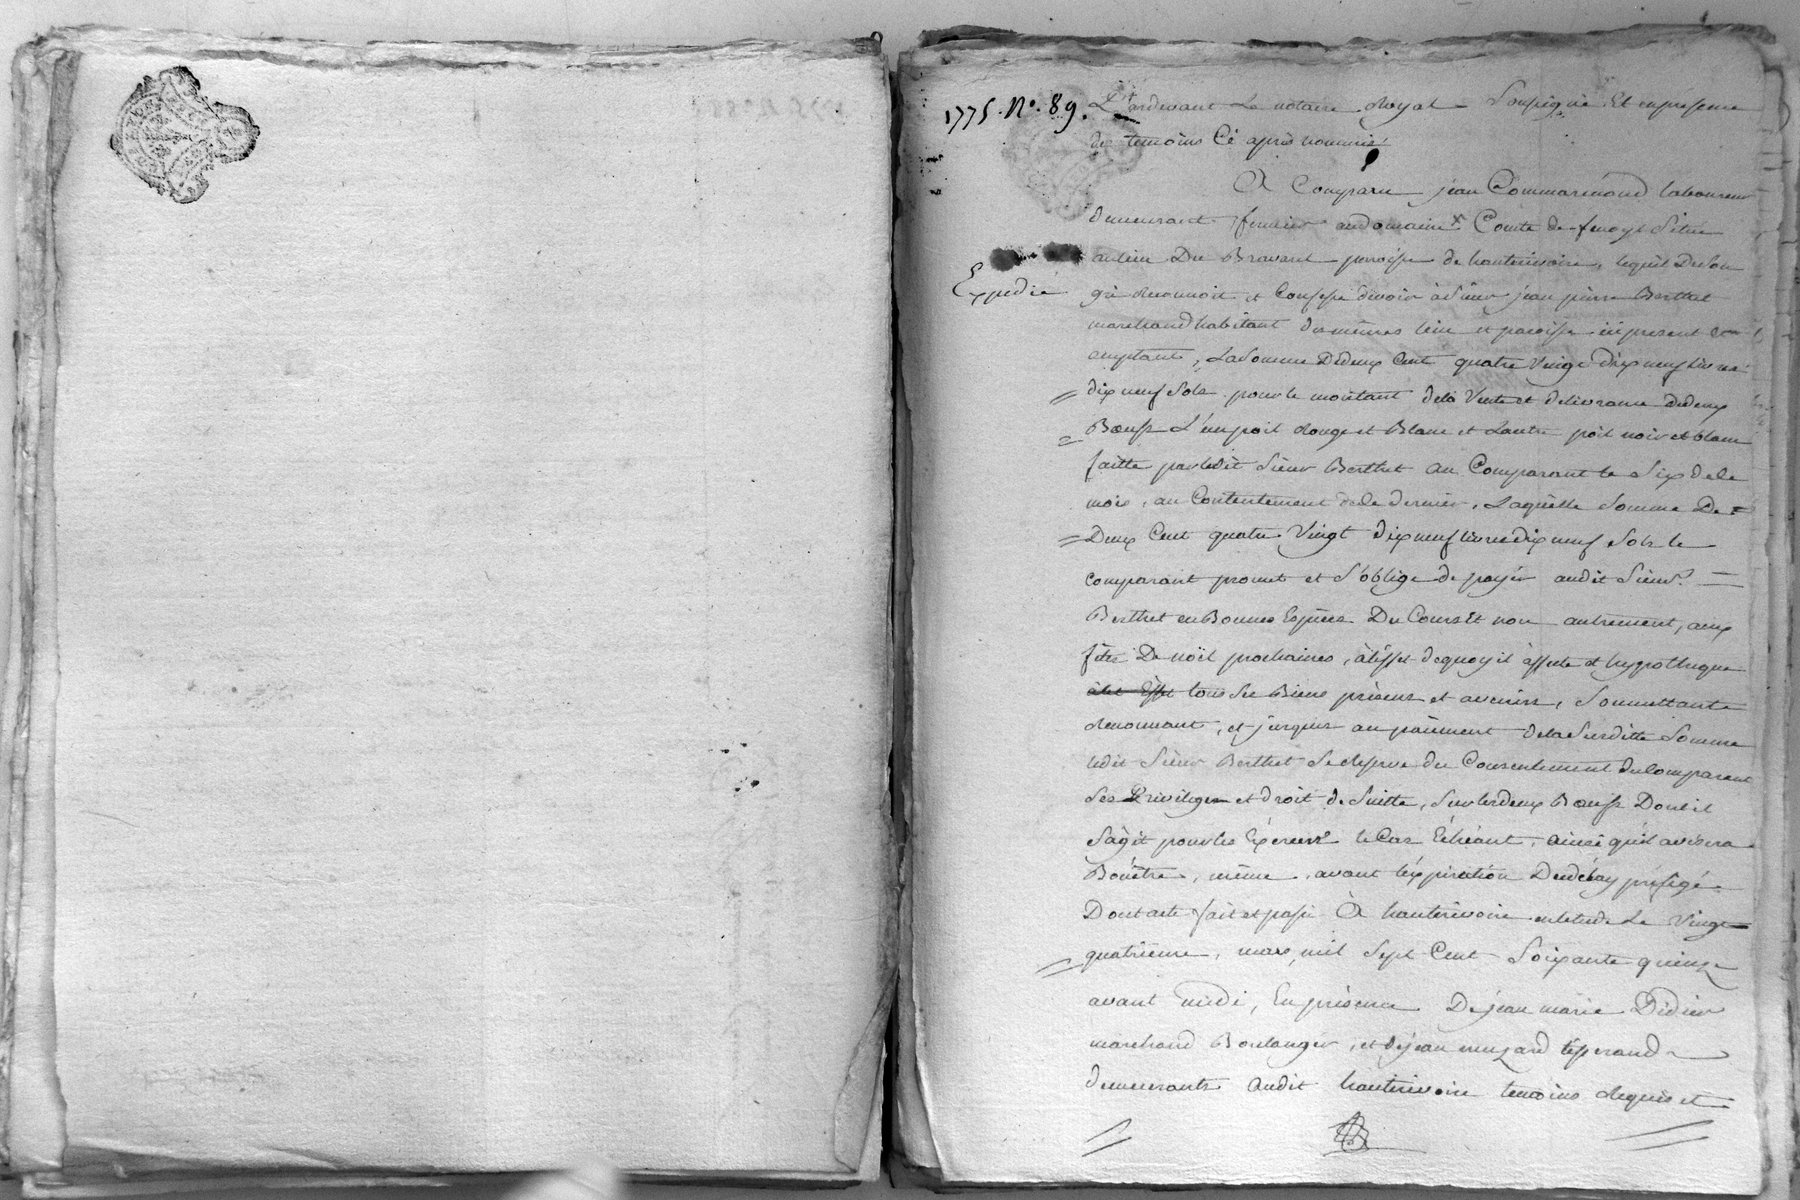 1775. N°. 89.
Pardevant Le notaire Royal Soussigné Et en presence
des temoins Cé après nommés
A Comparu jean Commarmond laboureur
demeurant fermier au domaine Comte de fenoyl Situé
au lieu Du Bravard parroisse de hauterivoire, lequel De son
Expedié
gré Reconnoit et Confesse devoir à Sieur jean pierre Berthet
marchand habitant des mêmes lieu et paroisse ici present &
acceptant, La Somme De deux Cent quatre Vingt dix neuf livres
dix neuf Sols pour le montant de la Vente et delivrance de deux
Bœufs L'un poil Rouge et Blanc et Lautre poil noir et blanc
faitte par ledit Sieur Berthet au Comparant le Six de ce
mois, au Contentement de ce dernier, Laquelle Somme De
Deux Cent quatre Vingt dix neuf livres dix neuf Sols le
comparant promet et S'oblige de payer audit Sieur
Berthet en Bonnes Espèces Du Cours Et non autrement, aux
fêtes De noël prochaines, à l'effet de quoy il affecte et hypotheque
à cet Effet tous Ses Biens présens et avenirs, Soumettante
Renonçant, et jusques au païement de la Susditte Somme
ledit Sieur Berthet Se Reserve du Consentement du Comparant
Ses Privileges et droit de Suitte, Sur les deux Bœufs Dont il
S'agit pour les Exercer le Cas Echéant, ainsi qu'il avisera
Bon être, même avant l'expiration Du délay préfigé
Dont acte fait et passé A hauterivoire en letude Le Vingt
quatrieme, mars, mil Sept Cent Soixante quinze
avant midi, En présence De jean marie Didier
marchand Boulanger, et de jean
demeurants audit hauterivoire temoins Requis et